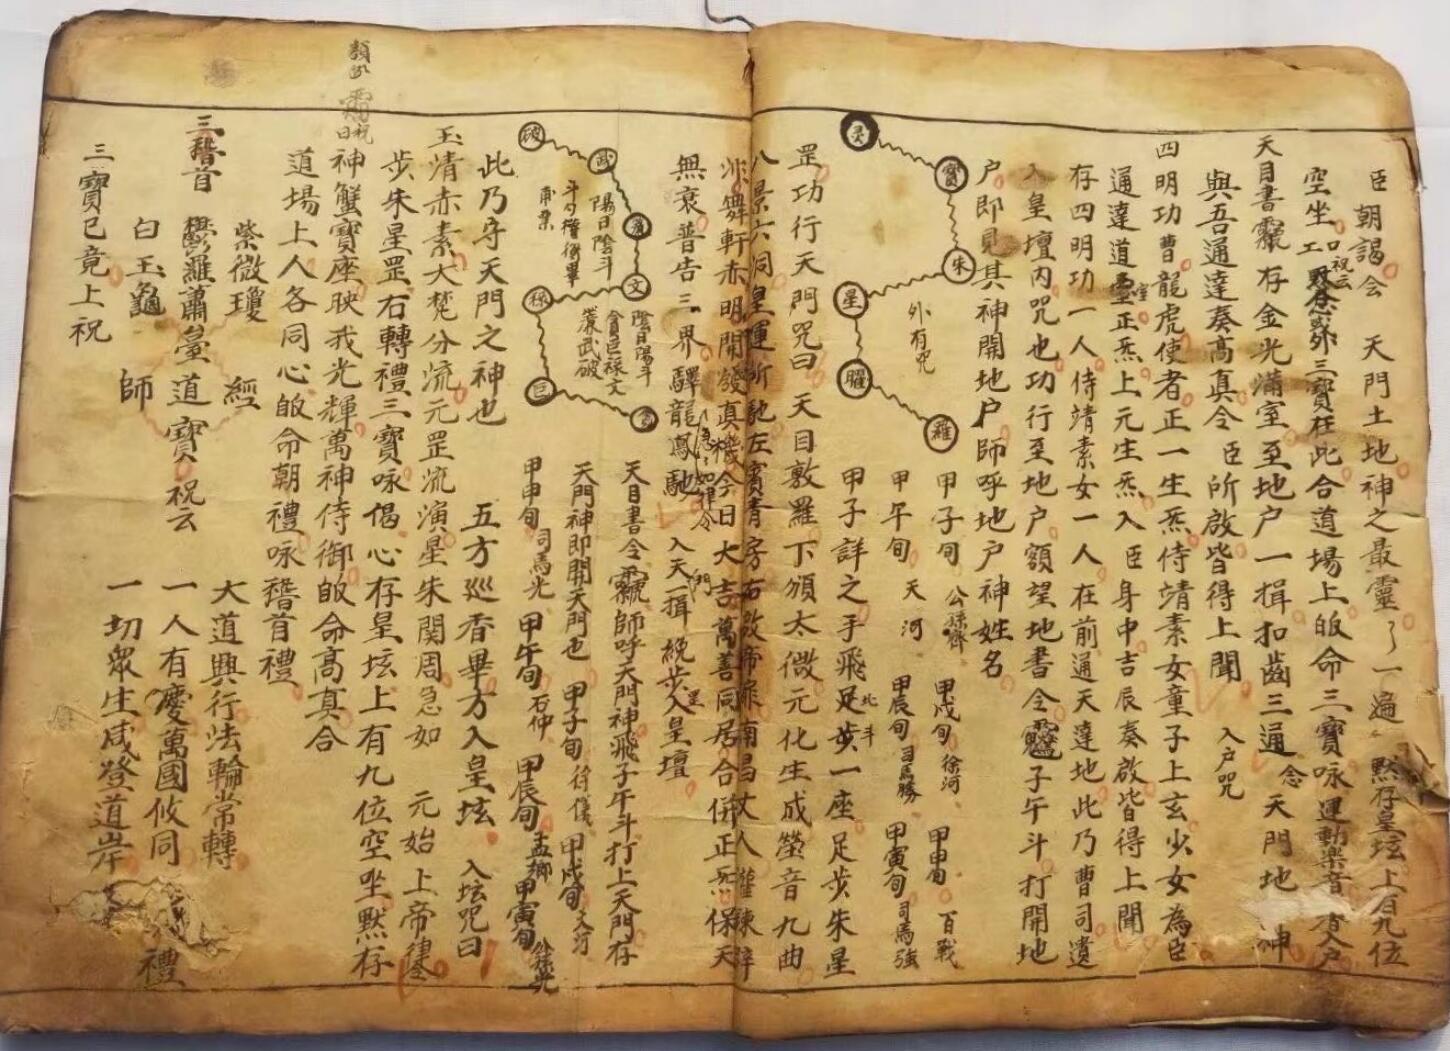 臣朝謁会　天門土地神之最靈了一遍　黙存皇坛上有九位
空坐 口祝云 黙念 三寶在此合道塲上皈命三寶咏運動樂音 香入户
天目書 存金光滿室至地户一揖扣齒三通 念 天門地神
與吾通達奏髙真令臣所啟皆得上聞　入户咒
四明功曹龍虎使者正一生炁侍靖素女童子上玄少女為臣
通達道室正炁上元生炁入臣身中吉辰奏啟皆得上聞
存四明功一人侍靖素女一人在前通天達地此乃曹司遺
入皇壇内咒也功行至地户額望地書令 子午斗打開地
户即見其神開地户師呼地户神姓名
灵
寶
朱
星
羅
外有咒
甲子旬 公孫齊 甲戌旬 徐河 甲申旬 百戰
甲午旬 天河 甲辰旬 司馬勝 甲寅旬 司馬強
甲子詳之手飛足步 北斗 一座足步朱星
罡功行天門咒曰　天目敦羅下頒太微元化生成螢音九曲
八景六洞皇運所馳左賓青房右啟帝扉南昌丈人
浉舞軒赤明開發真機今日大吉萬善同居合併正炁保天
無衰普告三界驛龍鳳馳 急急如律令 入天門一揖 步入皇壇
破
武
文
祿
巨
陽日陰斗
斗勺
陰日陽斗
貪巨祿文
廉武破
天目書令 師呼天門神飛子午斗打上天門存
天門神即開天門也 甲子旬 徐儀 甲戌旬 大河
甲申旬 司馬光 甲午旬 石仲 甲辰旬 孟鄉 甲寅旬
此乃守天門之神也　五方巡香畢方入皇坛　入坛咒曰
玉清赤素大梵分流元罡流演星朱関周急如　元始上帝律令
步朱星罡右轉禮三寶咏偈心存皇坛上有九位空坐黙存
祝曰 神蟹寶座映我光輝萬神侍御皈命髙真合
道塲上人各同心皈命朝禮咏稽首禮
紫微瓊　經　大道興行法輪常轉
三稽首　鬱羅蕭臺道寶祝云　一人有慶萬國攸同
白玉龜　師　一切衆生咸登道岸　禮
三寶已竟上祝